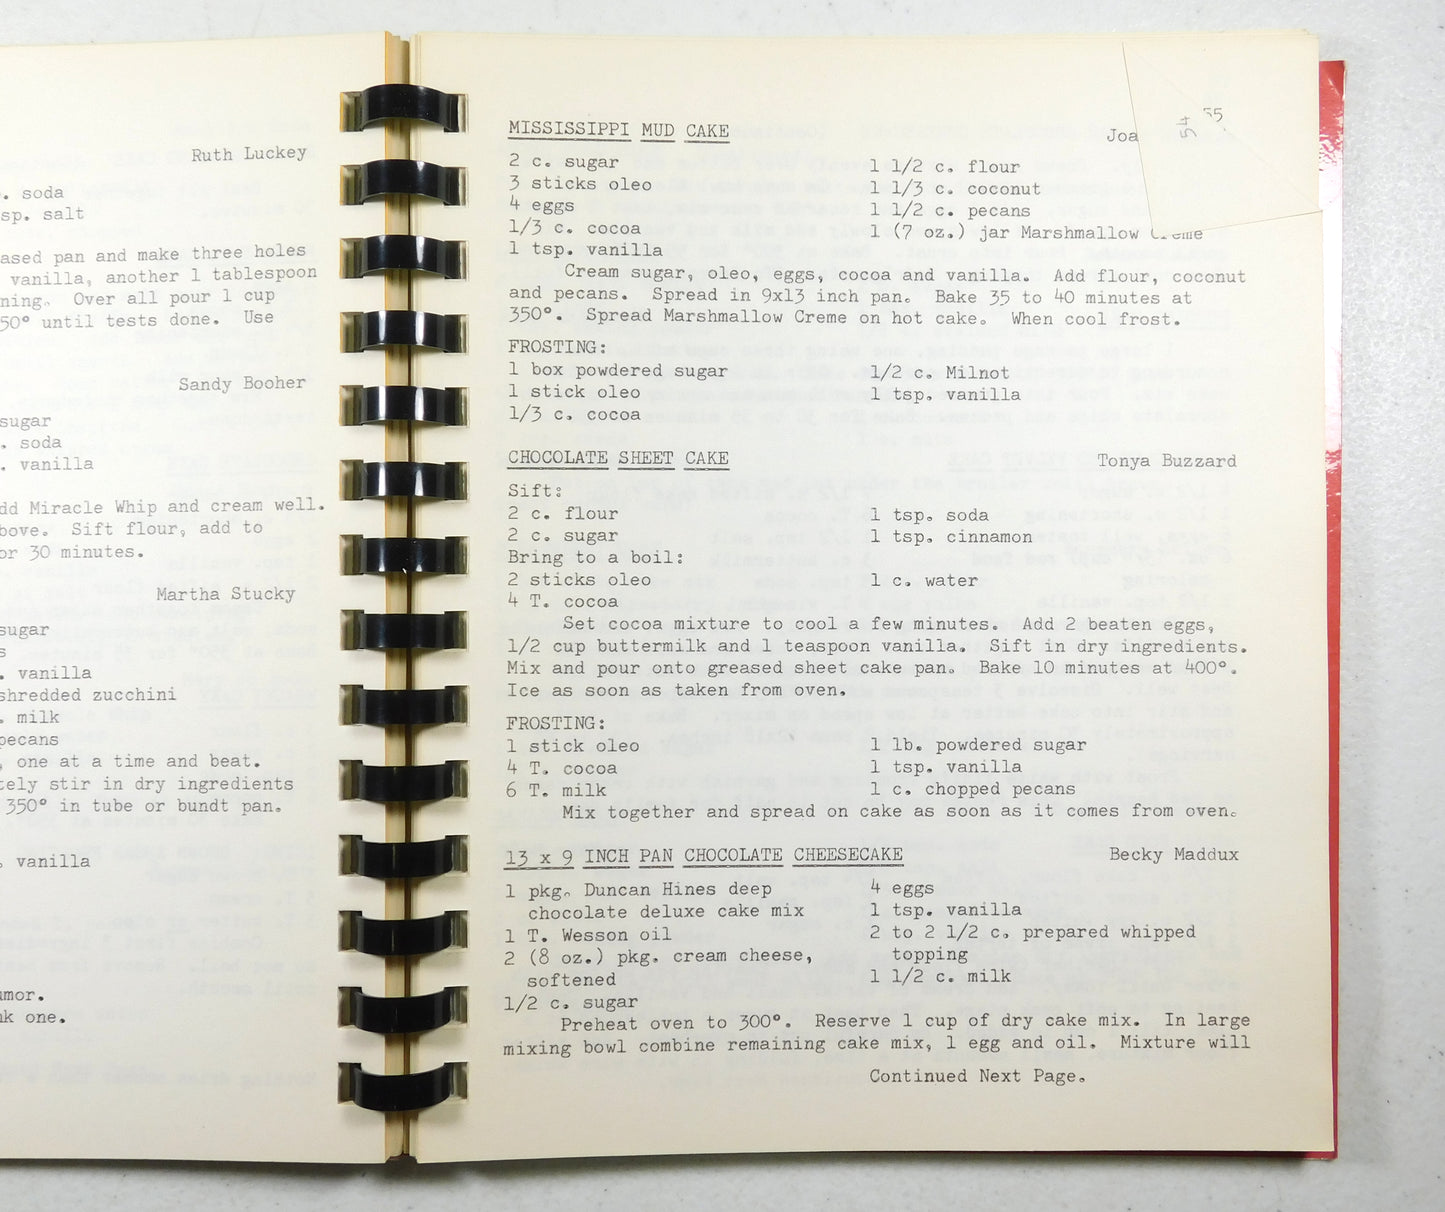 Ruth Luckey
. soda
sp. salt
ased pan and make three holes
vanilla, another 1 tablespoon
ning. Over all pour 1 cup
50° until tests done. Use
Sandy Booher
sugar
. soda
. vanilla
dd Miracle Whip and cream well.
bove. Sift flour, add to
or 30 minutes.
Martha Stucky
sugar
s
. vanilla
shredded zucchini
. milk
pecans
, one at a time and beat.
tely stir in dry ingredients
350° in tube or bundt pan.
. vanilla
umor.
nk one.
54
55
MISSISSIPPI MUD CAKE Joa
2 c. sugar 1 1/2 c. flour
3 sticks oleo 1 1/3 c. coconut
4 eggs 1 1/2 c. pecans
1/3 c. cocoa 1 (7 oz.) jar Marshmallow Creme
1 tsp. vanilla
Cream sugar, oleo, eggs, cocoa and vanilla. Add flour, coconut
and pecans. Spread in 9x13 inch pan. Bake 35 to 40 minutes at
350°. Spread Marshmallow Creme on hot cake. When cool frost.
FROSTING:
1 box powdered sugar 1/2 c. Milnot
1 stick oleo 1 tsp. vanilla
1/3 c. cocoa
CHOCOLATE SHEET CAKE Tonya Buzzard
Sift:
2 c. flour 1 tsp. soda
2 c. sugar 1 tsp. cinnamon
Bring to a boil:
2 sticks oleo 1 c. water
4 T. cocoa
Set cocoa mixture to cool a few minutes. Add 2 beaten eggs,
1/2 cup buttermilk and 1 teaspoon vanilla. Sift in dry ingredients.
Mix and pour onto greased sheet cake pan. Bake 10 minutes at 400°.
Ice as soon as taken from oven.
FROSTING:
1 stick oleo 1 lb. powdered sugar
4 T. cocoa 1 tsp. vanilla
6 T. milk 1 c. chopped pecans
Mix together and spread on cake as soon as it comes from oven.
13 x 9 INCH PAN CHOCOLATE CHEESECAKE Becky Maddux
1 pkg. Duncan Hines deep 4 eggs
chocolate deluxe cake mix 1 tsp. vanilla
1 T. Wesson oil 2 to 2 1/2 c. prepared whipped
2 (8 oz.) pkg. cream cheese, topping
softened 1 1/2 c. milk
1/2 c. sugar
Preheat oven to 300°. Reserve 1 cup of dry cake mix. In large
mixing bowl combine remaining cake mix, 1 egg and oil. Mixture will
Continued Next Page.